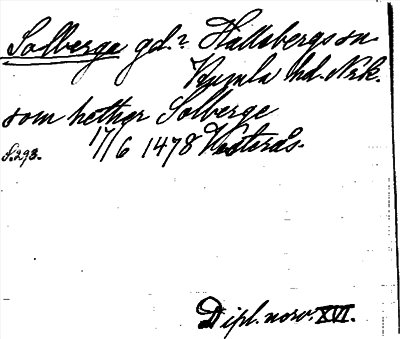 Solberge gd? Hallsbergs sn
Kumla hd. Nrk.
som hether Solberge
17/6 1478 Västerås.
S. 293.
Dipl. norv. XVI.